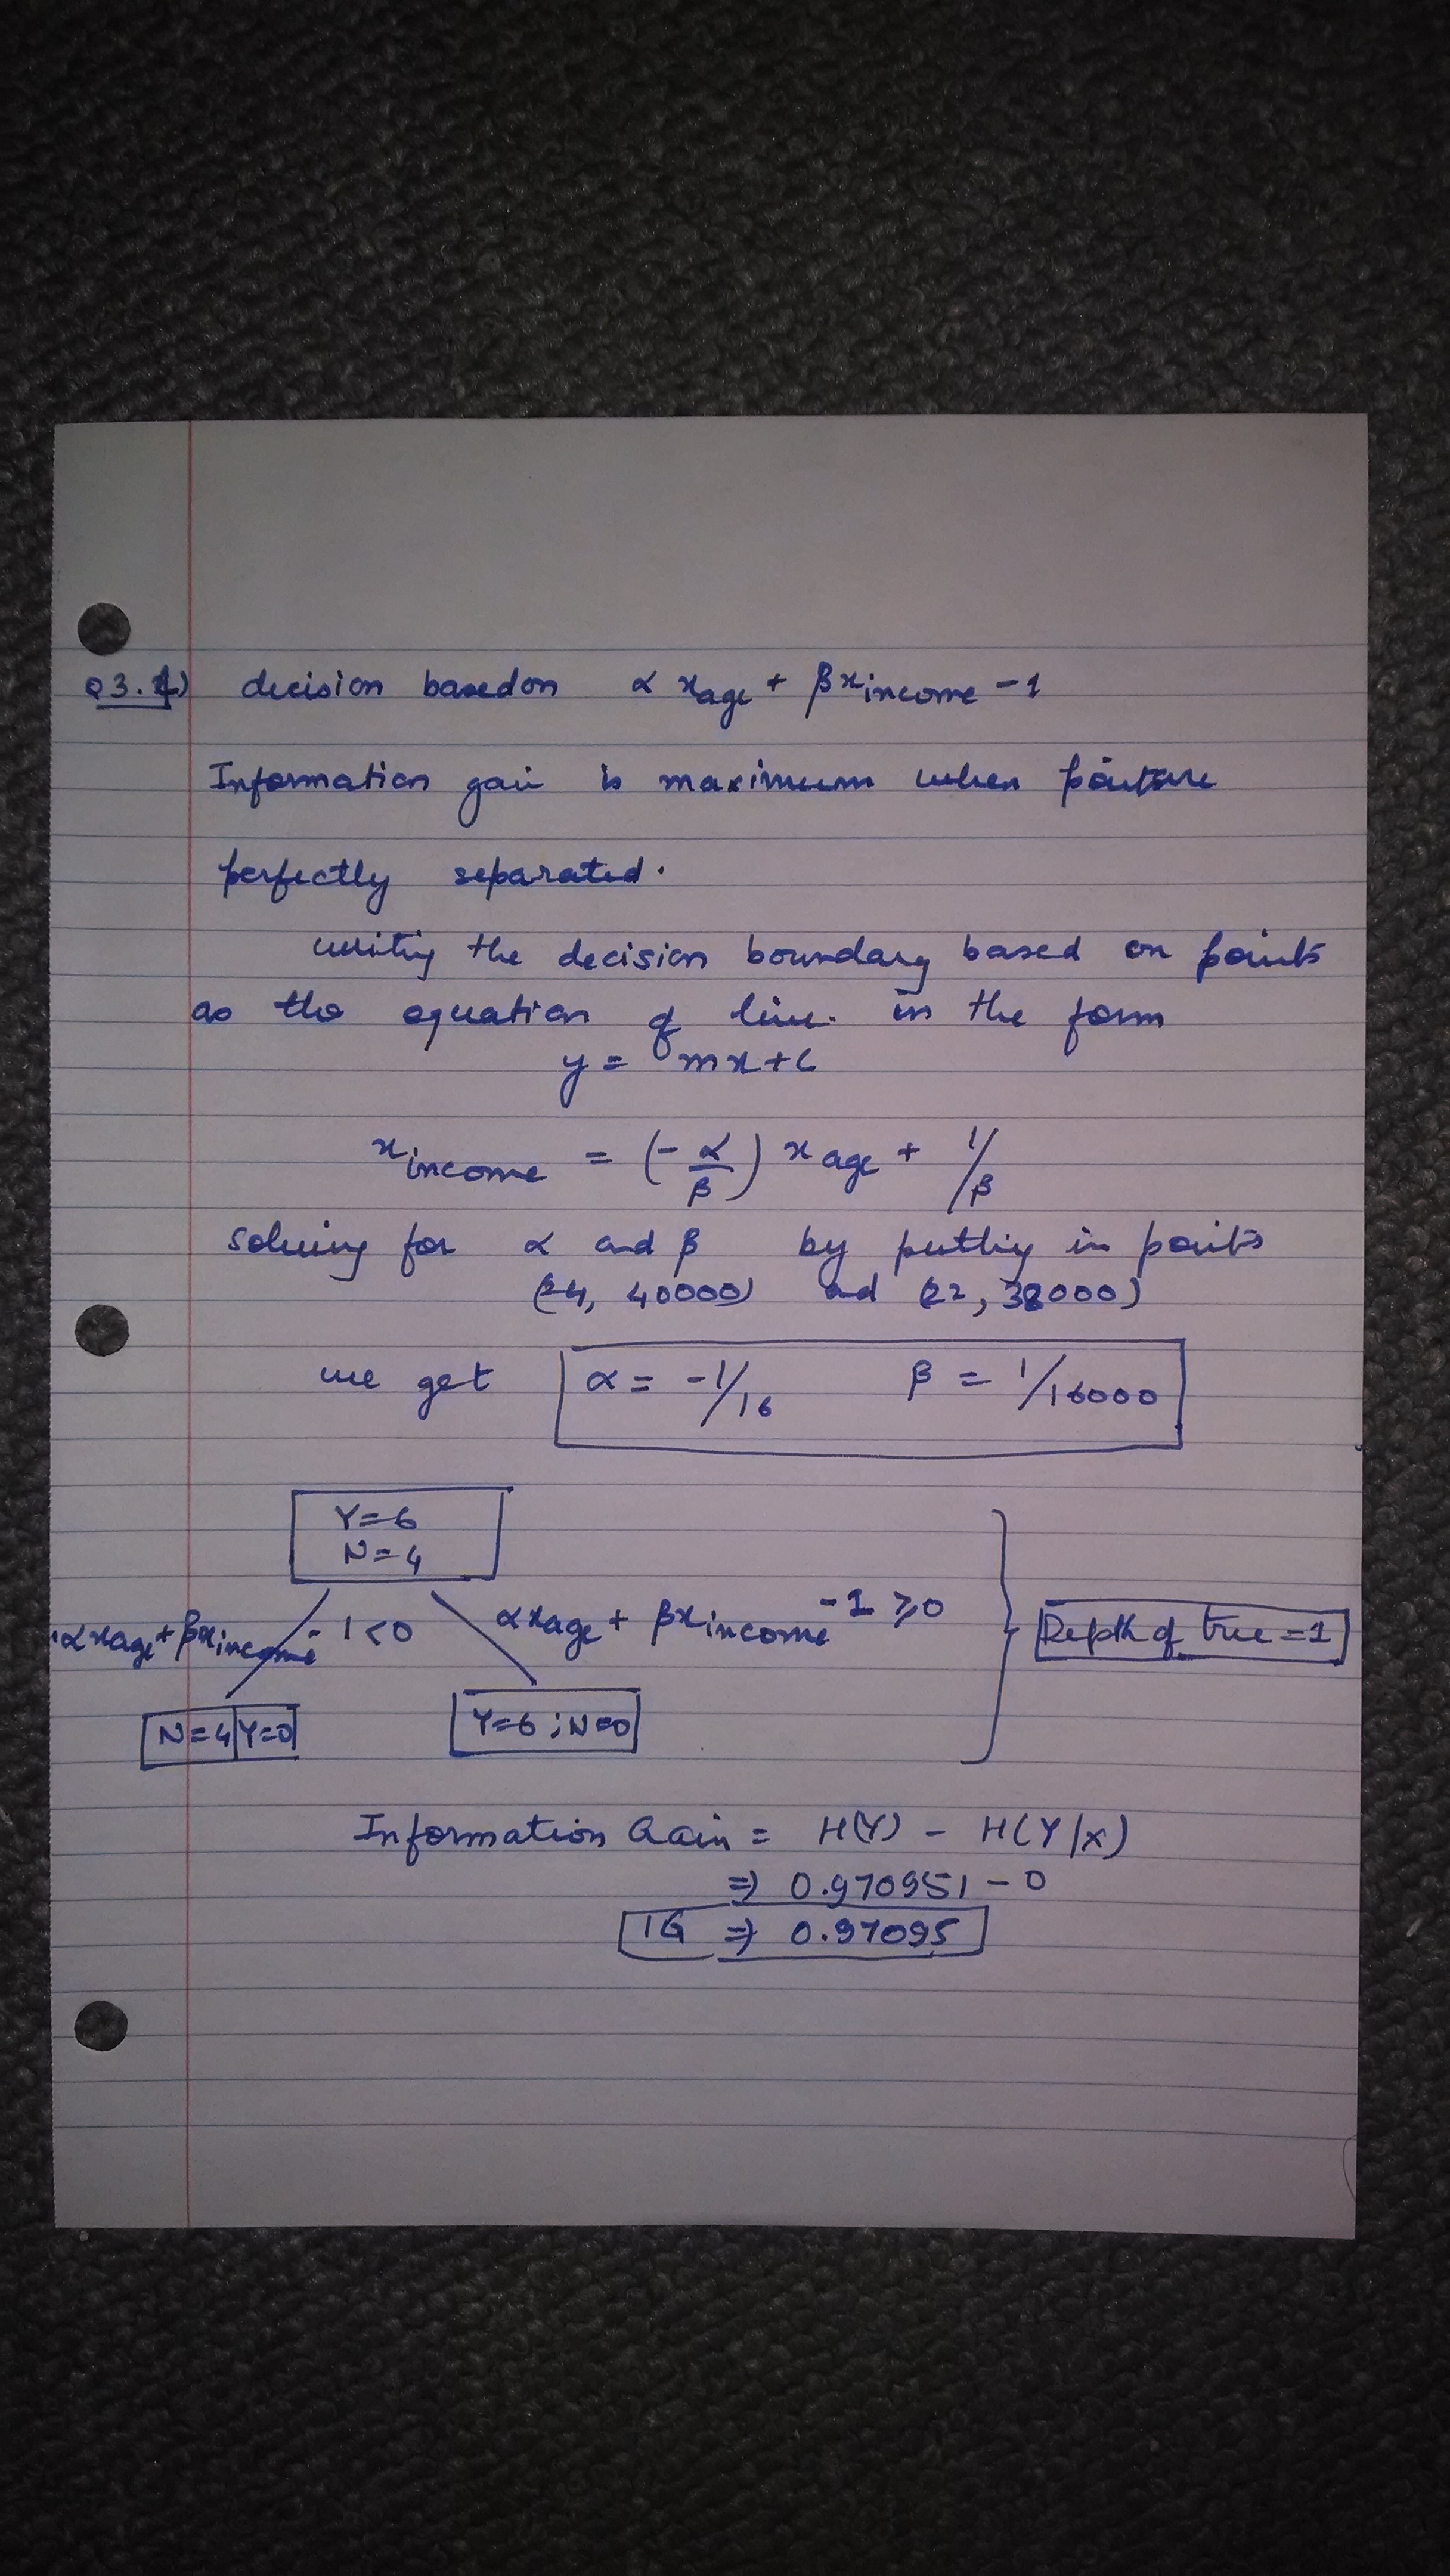 Q3.2) decision based on α xage + β xincome - 1
Information gain is maximum when points are
perfectly separated.
writing the decision boundary based on points
as the equation of line in the form
y = mx+c
xincome = (-α/β) xage + 1/β
solving for α and β by putting in points
(24, 40000) and (22, 38000)
we get α = -1/16 β = 1/16000
Y=6
N=4
αxage + βxincome - 1 < 0 αxage + βxincome - 1 ≥ 0 Depth of tree = 1
N=4 Y=0 Y=6 ; N=0
Information Gain = H(Y) - H(Y|X)
⇒ 0.970951 - 0
IG ⇒ 0.97095